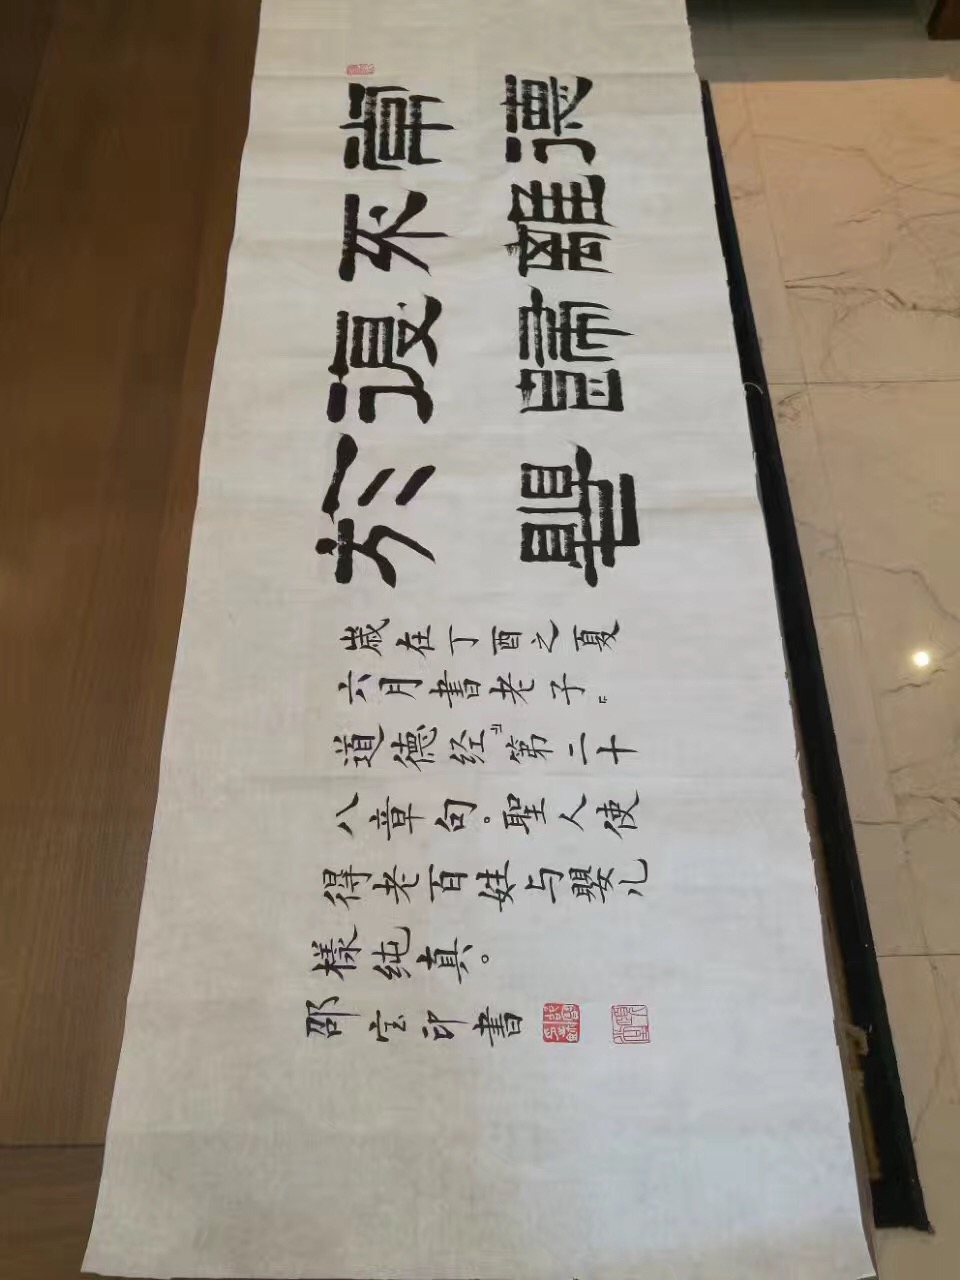 常德
不離
復歸
於嬰
歲在丁酉之夏
六月書老子。『
道德经』第二十
八章句。聖人使
得老百姓与嬰儿
樣纯真。
邵宝印書